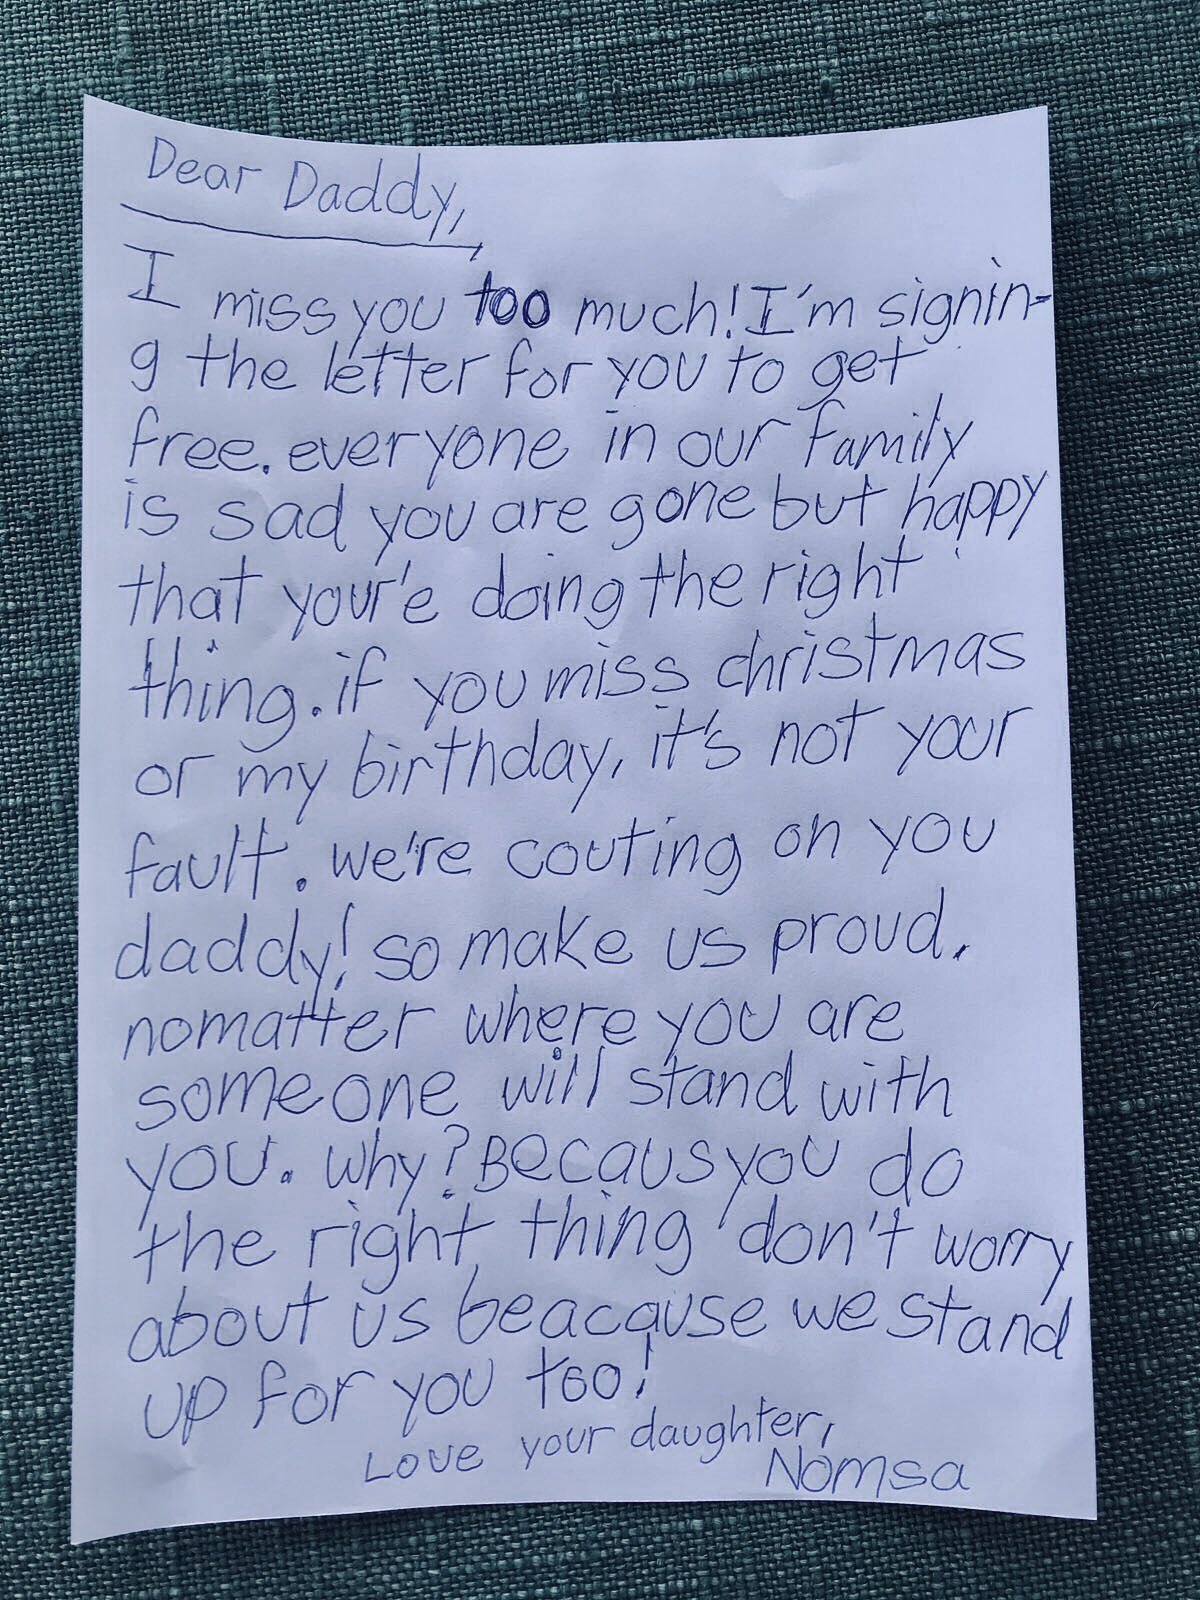 Dear Daddy,
I miss you too much! I'm signin-
g the letter for you to get
free. everyone in our family
is sad you are gone but happy
that your'e doing the right
thing. if you miss christmas
or my birthday, it's not your
fault. we're couting on you
daddy! so make us proud.
nomatter where you are
someone will stand with
you. why? Becaus you do
the right thing don't worry
about us beacause we stand
up for you too!
Love your daughter,
Nomsa